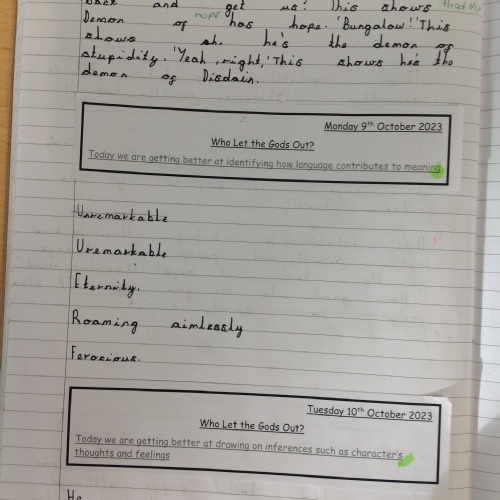 and get us! This shows that the
Demon of nope has hope. 'Bungalow!' This
shows sh. he's the demon of
stupidity. 'Yeah ,right,' This shows he's the
demon of Disdain.
Monday 9th October 2023
Who Let the Gods Out?
Today we are getting better at identifying how language contributes to meaning
Unremarkable
Uremarkable
Eternity.
Roaming aimlessly
Ferocious.
Tuesday 10th October 2023
Who Let the Gods Out?
Today we are getting better at drawing on inferences such as character's
thoughts and feelings
He